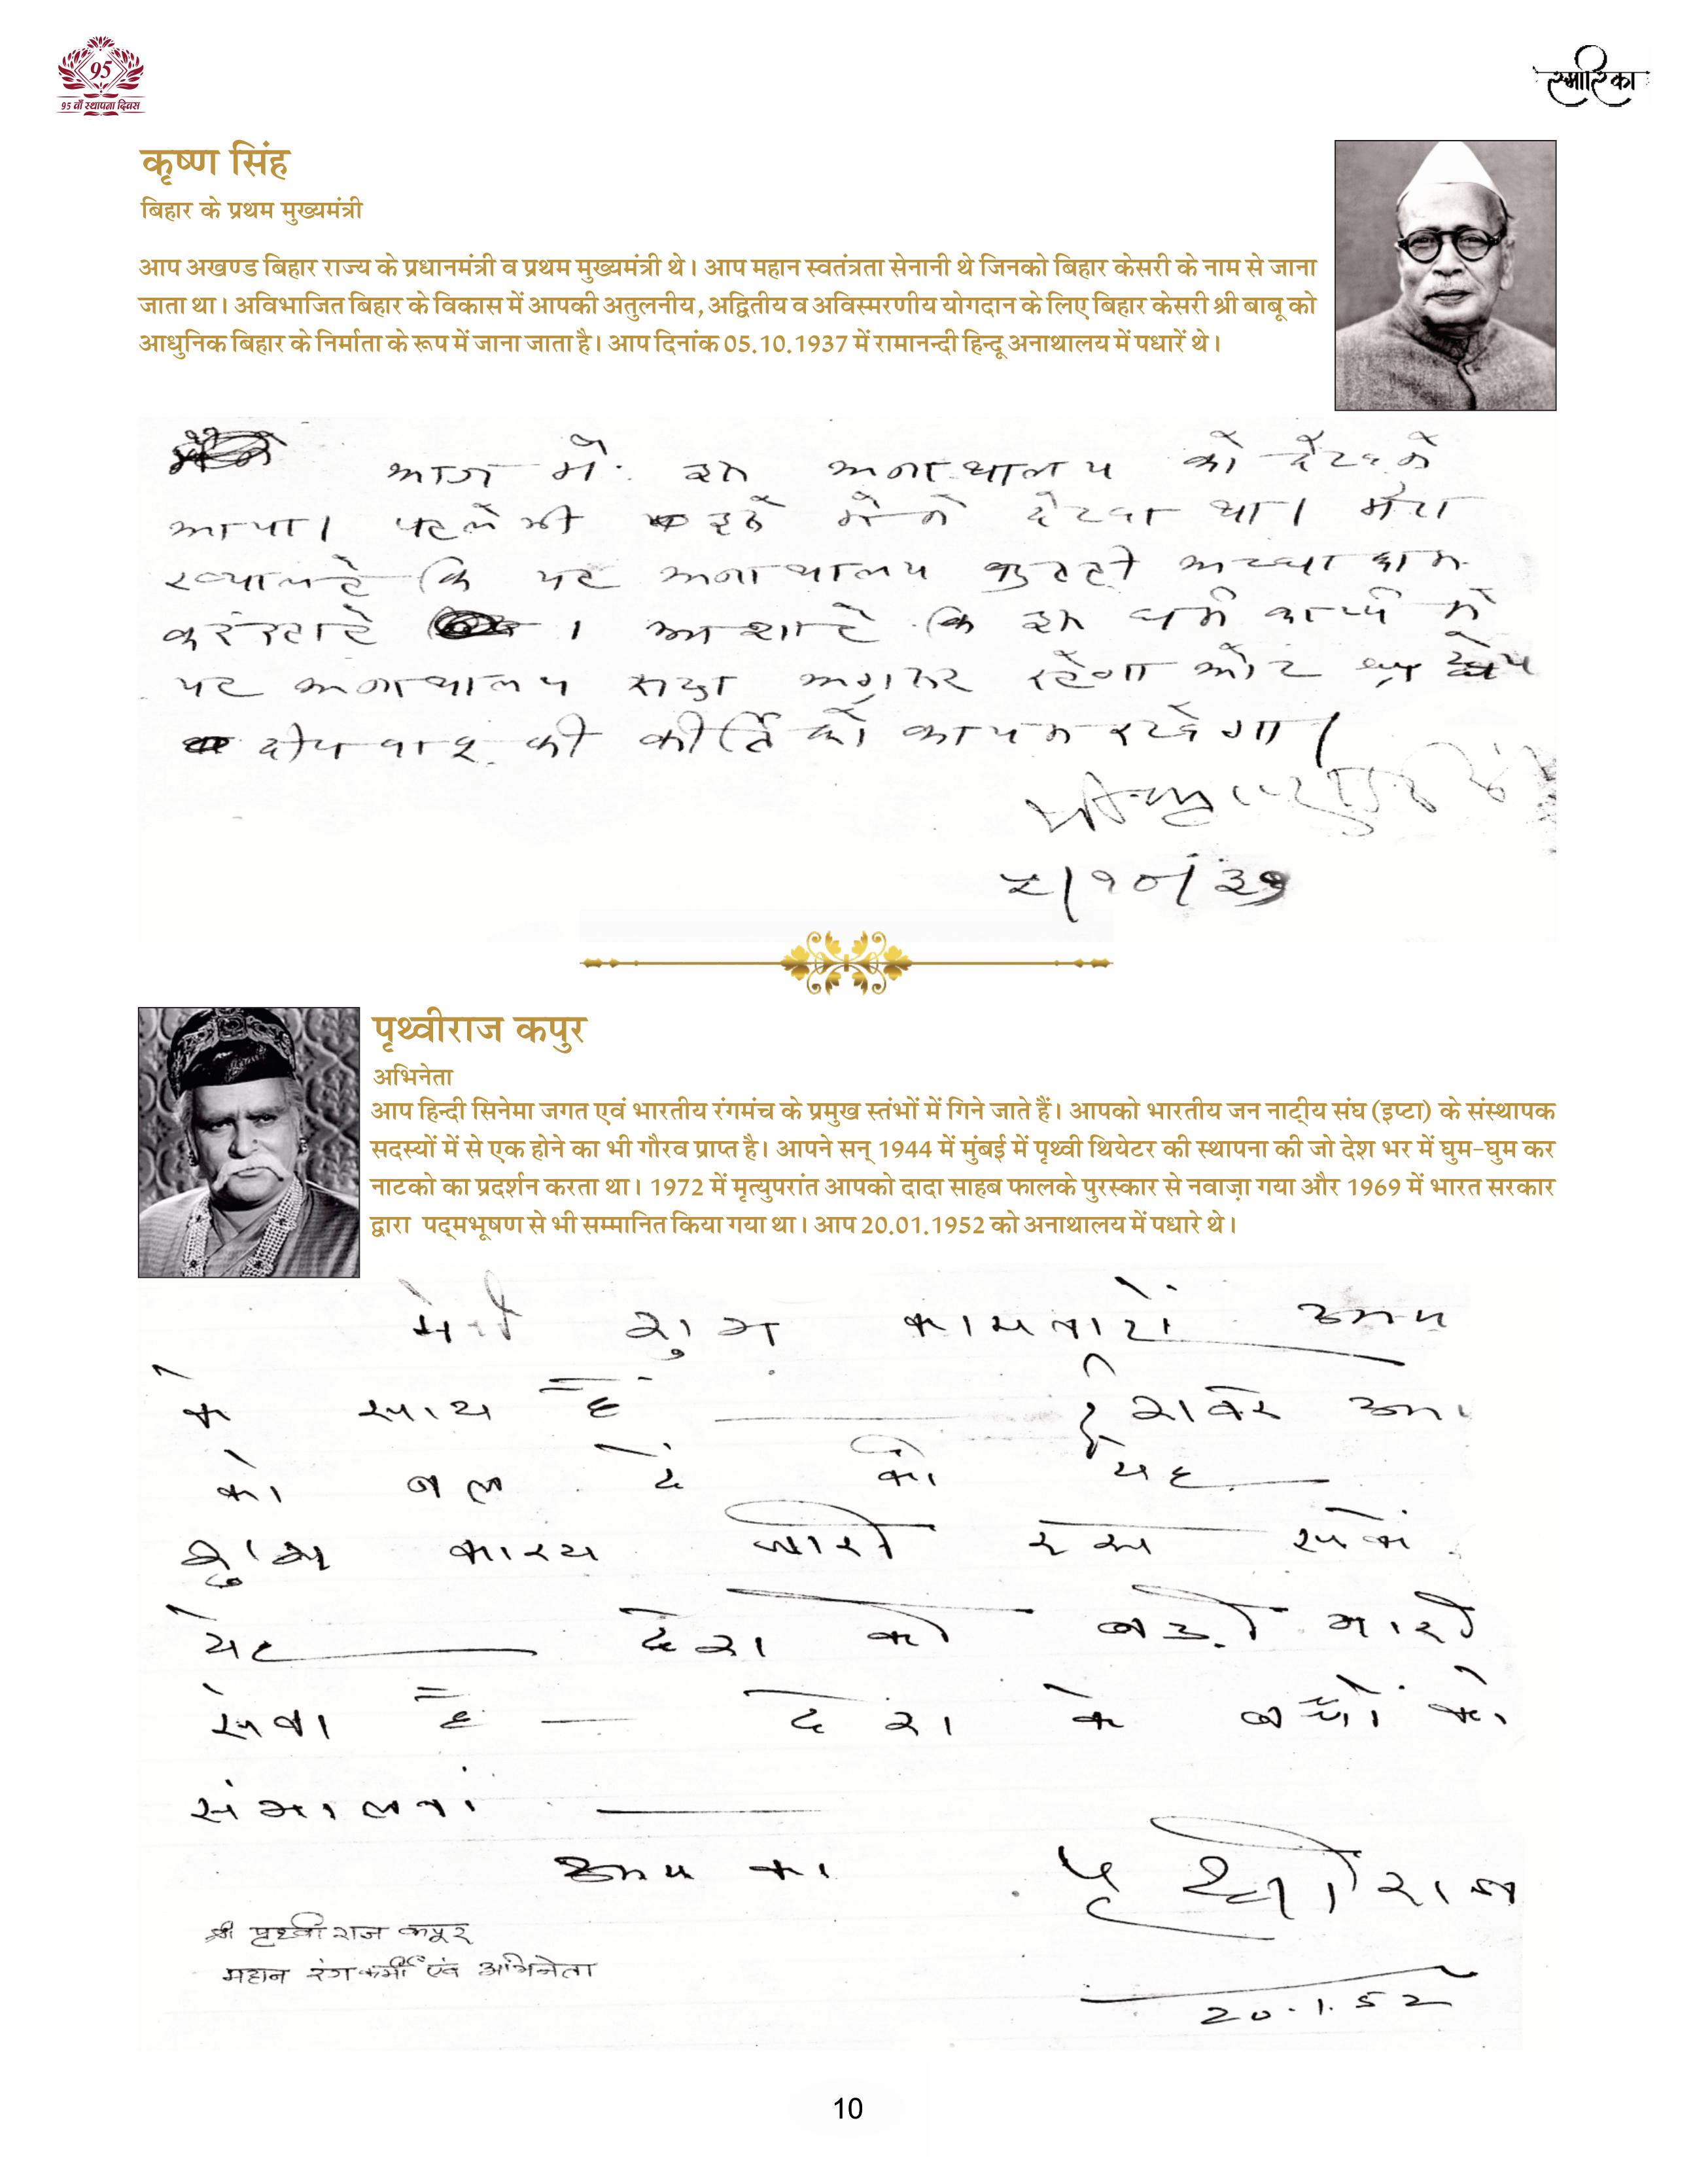 95
95 वाँ स्थापना दिवस
स्मारिका
कृष्ण सिंह
बिहार के प्रथम मुख्यमंत्री
आप अखण्ड बिहार राज्य के प्रधानमंत्री व प्रथम मुख्यमंत्री थे। आप महान स्वतंत्रता सेनानी थे जिनको बिहार केसरी के नाम से जाना
जाता था। अविभाजित बिहार के विकास में आपकी अतुलनीय, अद्वितीय व अविस्मरणीय योगदान के लिए बिहार केसरी श्री बाबू को
आधुनिक बिहार के निर्माता के रूप में जाना जाता है। आप दिनांक 05.10.1937 में रामानन्दी हिन्दू अनाथालय में पधारें थे।
आज मैं इस अनाथालय को देखने
आया। पहले भी इसे मैंने देखा था। मेरा
ख्याल है कि यह अनाथालय बहुत ही अच्छा काम
कर रहा है । आशा है कि इस धर्म कार्य्य में
यह अनाथालय सदा अग्रसर रहेगा और
की कीर्ति को कायम रखेगा।
५/१०/३७
पृथ्वीराज कपुर
अभिनेता
आप हिन्दी सिनेमा जगत एवं भारतीय रंगमंच के प्रमुख स्तंभों में गिने जाते हैं। आपको भारतीय जन नाट्रीय संघ (इप्टा) के संस्थापक
सदस्यों में से एक होने का भी गौरव प्राप्त है। आपने सन् 1944 में मुंबई में पृथ्वी थियेटर की स्थापना की जो देश भर में घुम-घुम कर
नाटको का प्रदर्शन करता था। 1972 में मृत्युपरांत आपको दादा साहब फालके पुरस्कार से नवाज़ा गया और 1969 में भारत सरकार
द्वारा पद्मभूषण से भी सम्मानित किया गया था। आप 20.01.1952 को अनाथालय में पधारे थे।
मेरी शुभ कामनायें आप
के साथ हैं — ईशवर आप
को बल दें की यह —
शुभ कारय जारी रख सकें
येह — देश की बड़ी भारी
सेवा है — देश के बच्चों को
संभालना —
आप का
पृथ्वीराज
20.1.52
श्री पृथ्वीराज कपूर
महान रंगकर्मी एवं अभिनेता
10